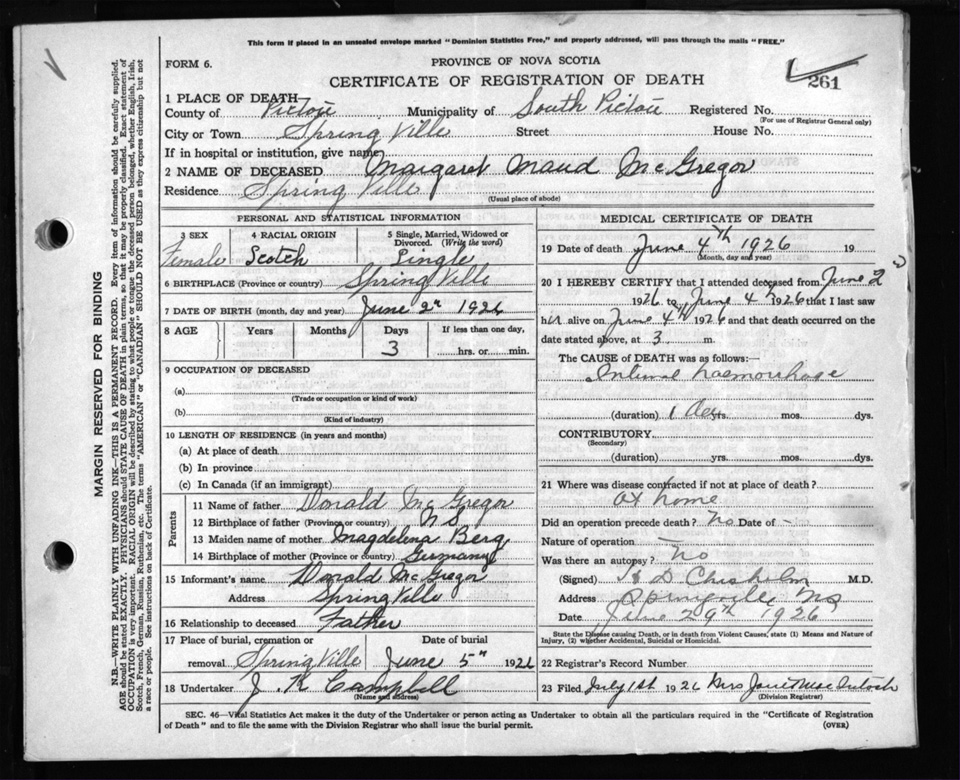 This form if placed in an unsealed envelope marked "Dominion Statistics Free," and properly addressed, will pass through the mails "FREE."
FORM 6.
PROVINCE OF NOVA SCOTIA
CERTIFICATE OF REGISTRATION OF DEATH
261
1 PLACE OF DEATH—
County of Pictou Municipality of South Pictou Registered No.
(For use of Registrar General only)
City or Town Spring Ville Street House No.
If in hospital or institution, give name
2 NAME OF DECEASED Margaret Maud McGregor
Residence Spring Ville
(Usual place of abode)
PERSONAL AND STATISTICAL INFORMATION
3 SEX 4 RACIAL ORIGIN 5 Single, Married, Widowed or Divorced. (Write the word)
Female Scotch Single
6 BIRTHPLACE (Province or country) Spring Ville
7 DATE OF BIRTH (month, day and year) June 2n 1926
8 AGE Years Months Days If less than one day,
3 hrs. or min.
9 OCCUPATION OF DECEASED
(a)
(Trade or occupation or kind of work)
(b)
(Kind of industry)
10 LENGTH OF RESIDENCE (in years and months)
(a) At place of death
(b) In province
(c) In Canada (if an immigrant)
Parents
11 Name of father Donald McGregor
12 Birthplace of father (Province or country) N S
13 Maiden name of mother Magdelena Berg
14 Birthplace of mother (Province or country) Germany
15 Informant's name Donald McGregor
Address Spring Ville
16 Relationship to deceased Father
17 Place of burial, cremation or Date of burial
removal Spring Ville June 5th 1926
18 Undertaker J. K Campbell
(Name and address)
MEDICAL CERTIFICATE OF DEATH
19 Date of death June 4th 1926 19
(Month, day and year)
20 I HEREBY CERTIFY that I attended deceased from June 2
1926 to June 4th 1926 that I last saw
her alive on June 4th 1926 and that death occurred on the
date stated above, at 3 m.
The CAUSE OF DEATH was as follows:—
haemorrhage
(duration) 1 day yrs. mos. dys.
CONTRIBUTORY
(Secondary)
(duration) yrs. mos. dys.
21 Where was disease contracted if not at place of death?
at home
Did an operation precede death? No Date of -
Nature of operation —
Was there an autopsy? no
(Signed) H D Chisholm M.D.
Address Springville NS
Date June 29th 1926
State the Disease causing Death, or in death from Violent Causes, state (1) Means and Nature of
Injury, (2) whether Accidental, Suicidal or Homicidal.
22 Registrar's Record Number
23 Filed July 1st 1926 Mrs Jane MacIntosh
(Division Registrar)
SEC. 46—Vital Statistics Act makes it the duty of the Undertaker or person acting as Undertaker to obtain all the particulars required in the "Certificate of Registration
of Death" and to file the same with the Division Registrar who shall issue the burial permit. (OVER)
MARGIN RESERVED FOR BINDING
N.B.—WRITE PLAINLY WITH UNFADING INK—THIS IS A PERMANENT RECORD. Every item of information should be carefully supplied.
AGE should be stated EXACTLY. PHYSICIANS should STATE CAUSE OF DEATH in plain terms, so that it may be properly classified. Exact statement of
OCCUPATION is very important. RACIAL ORIGIN will be described by stating to what people or tongue the deceased person belonged, whether English, Irish,
Scotch, French, German, Russian, Ruthenian, etc. The terms "AMERICAN" or "CANADIAN" SHOULD NOT BE USED as they express citizenship but not
a race or people. See instructions on back of Certificate.